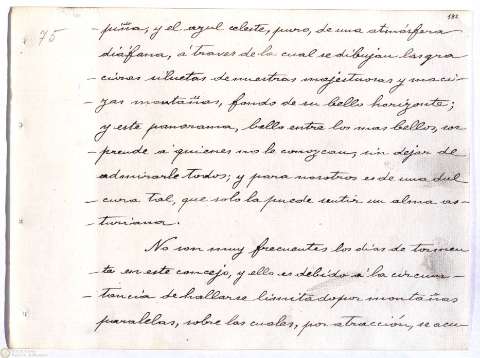 182
75
- piña, y el azul celeste, puro, de una atmósfera
- diáfana, á traves de la cual se dibujan las gra
- ciosas siluetas de nuestras majestuosas y maci-
- zas montañas, fondo de su bello horizonte;
- y este panorama, bello entre los mas bellos, sor
- prende a quienes no lo conozcan, sin dejar de
- admirarlo todos; y para nosotros es de una dul
- cura tal, que solo la puede sentir un alma as-
- turiana.
No son muy frecuentes los dias de tormen
- ta en este concejo, y ello es debido á la circuns-
- tancia de hallarse limitado por montañas
- paralelas, sobre las cuales, por atracción, se acu